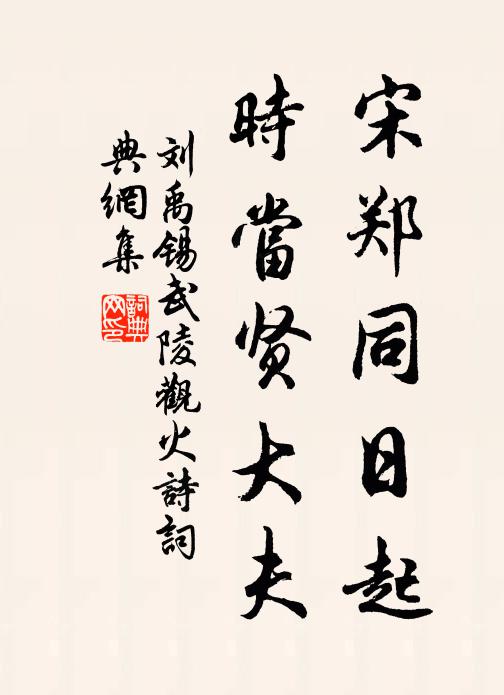 宋郑同日起
時當贤大夫
刘禹锡武陵觀火詩詞
典網集
詞典網印